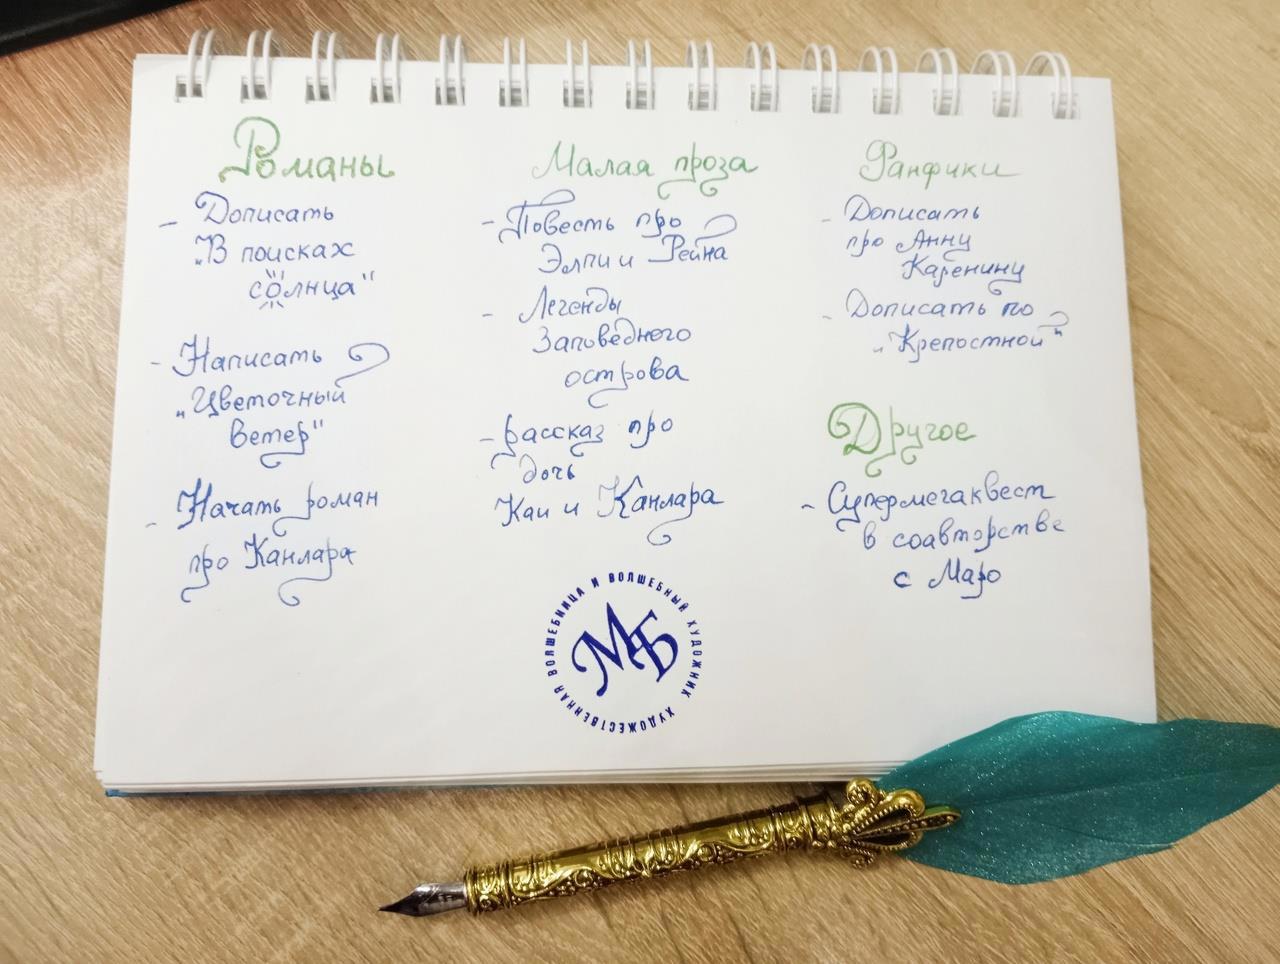 Романы
- Дописать
"В поисках
солнца"
- Написать
"Цветочный
Ветер"
- Начать роман
про Канлара
Малая проза
- Повесть про
Элпи и Рейна
- Легенды
Заповедного
острова
- рассказ про
дочь
Каи и Канлара
Фанфики
- Дописать
про Анну
Каренину
- Дописать по
"Крепостной"
Другое
- Супермегаквест
в соавторстве
с Маро
МБ
ХУДОЖЕСТВЕННАЯ ВОЛШЕБНИЦА И ВОЛШЕБНЫЙ ХУДОЖНИК